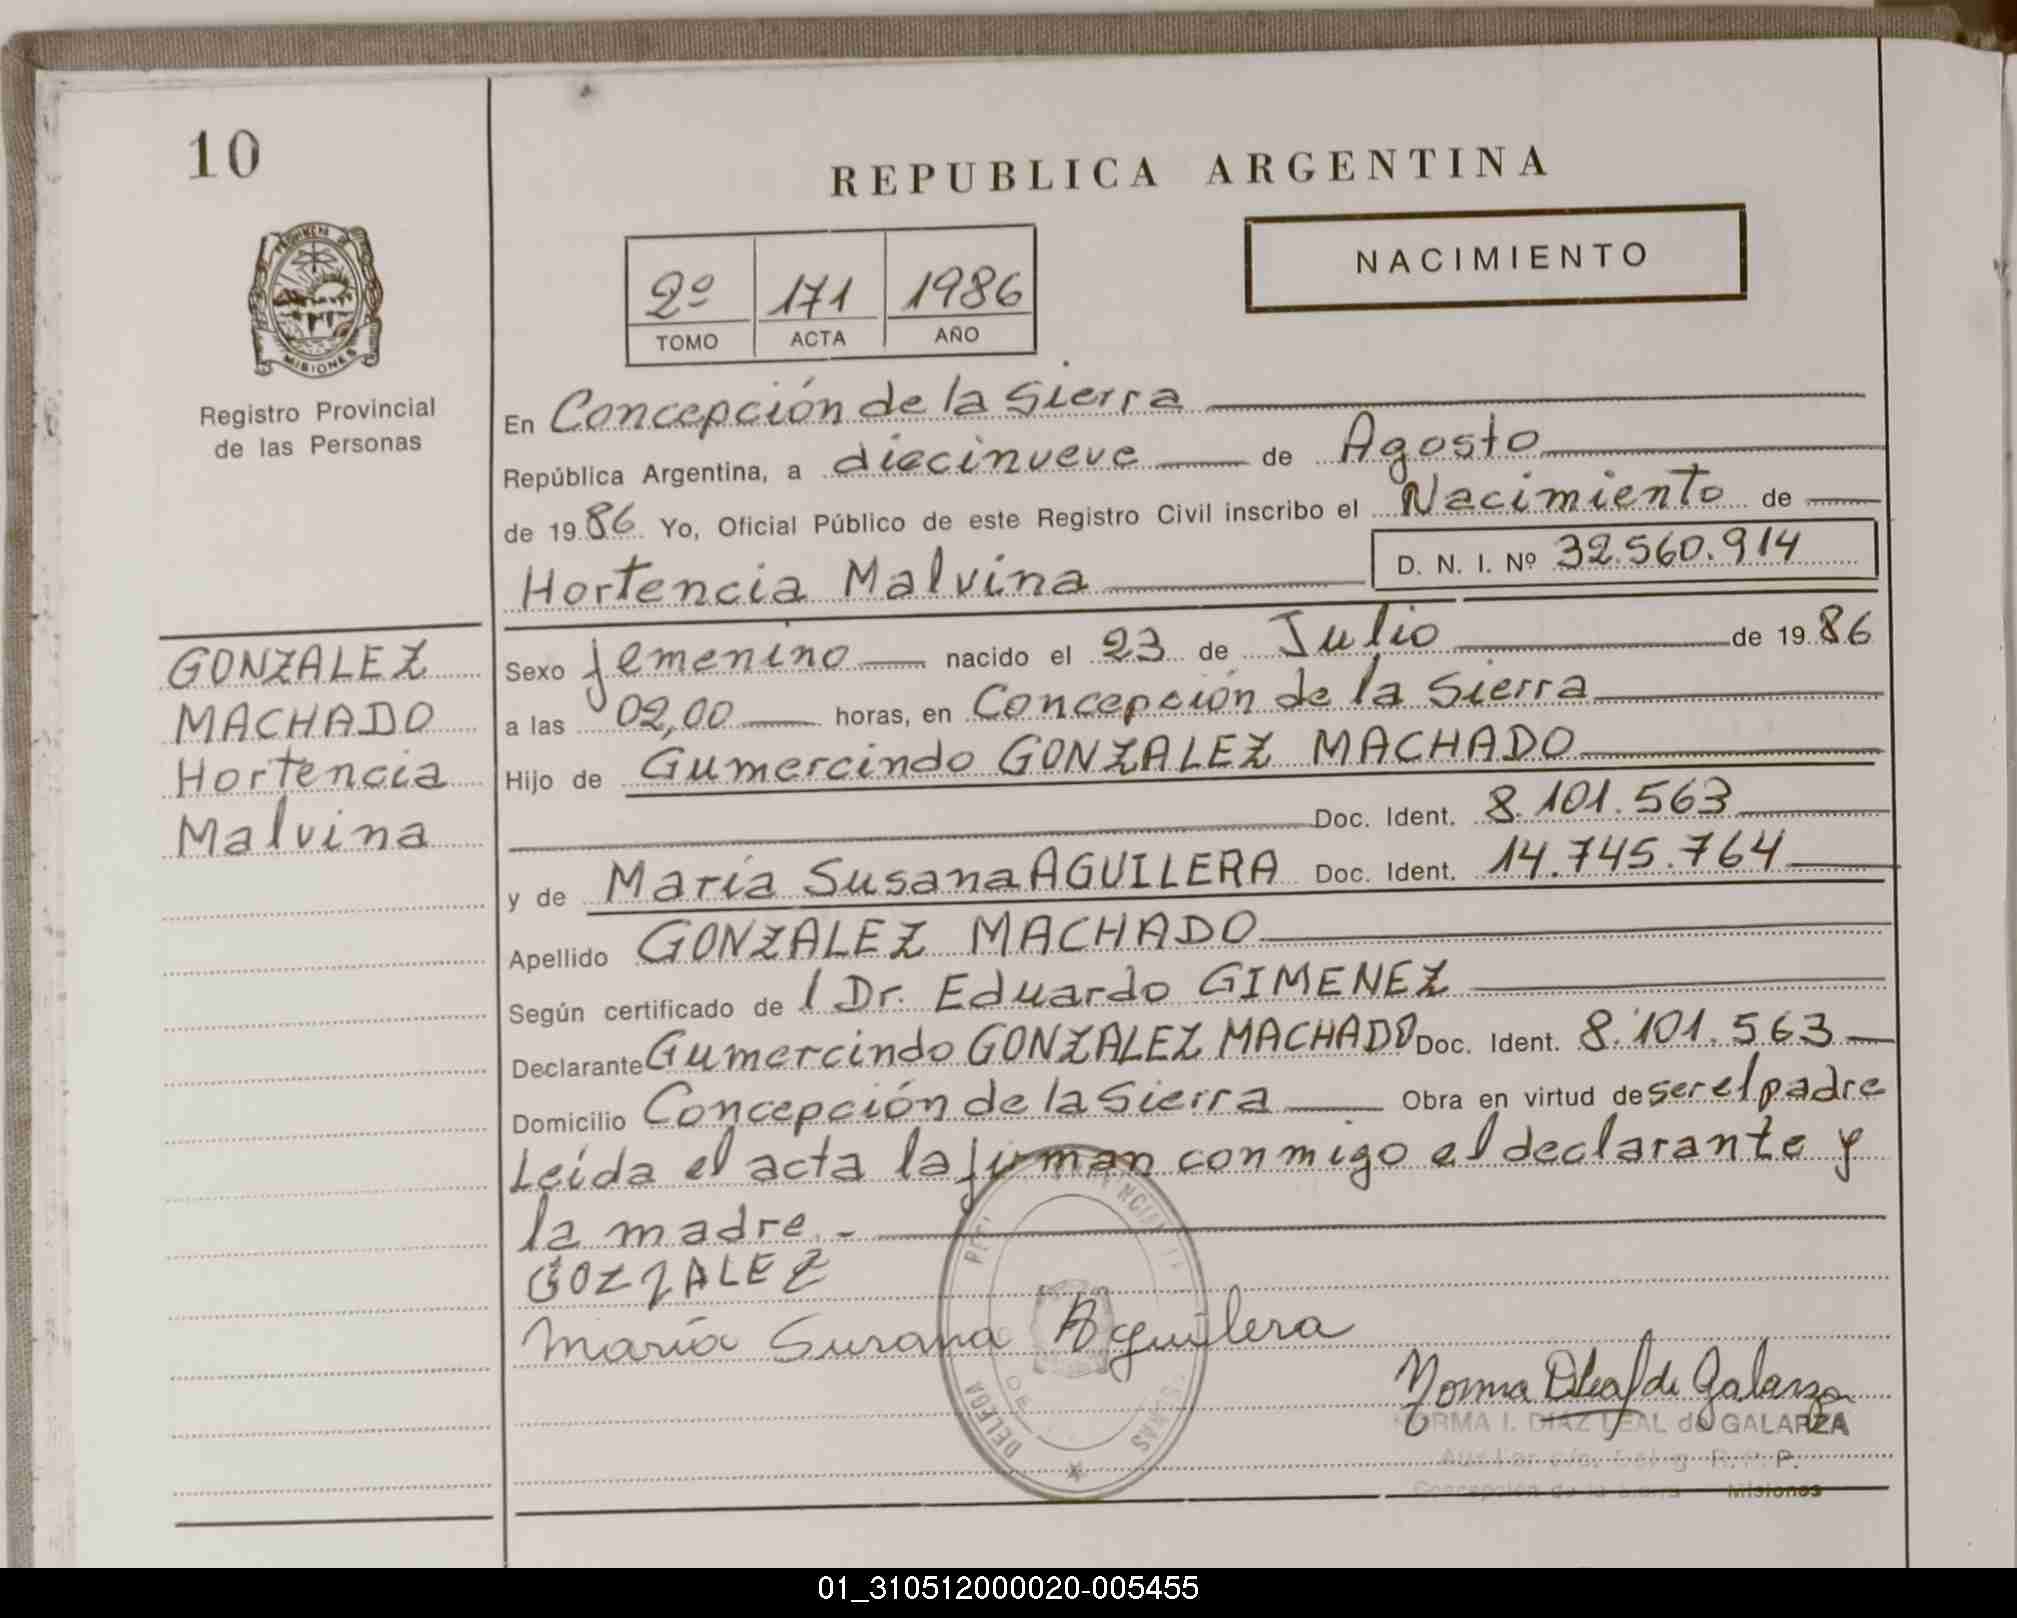 10
REPUBLICA ARGENTINA
NACIMIENTO
2º 171 1986
TOMO ACTA AÑO
PROVINCIA DE
MISIONES
Registro Provincial
de las Personas
En Concepción de la Sierra
República Argentina, a diecinueve de Agosto
de 1986 Yo, Oficial Público de este Registro Civil inscribo el Nacimiento de
Hortencia Malvina D. N. I. Nº 32.560.914
GONZALEZ
MACHADO
Hortencia
Malvina
Sexo femenino nacido el 23 de Julio de 1986
a las 02,00 horas, en Concepción de la Sierra
Hijo de Gumercindo GONZALEZ MACHADO
Doc. Ident. 8.101.563
y de María Susana AGUILERA Doc. Ident. 14.745.764
Apellido GONZALEZ MACHADO
Según certificado de l Dr. Eduardo GIMENEZ
Declarante Gumercindo GONZALEZ MACHADO Doc. Ident. 8.101.563
Domicilio Concepción de la Sierra Obra en virtud de ser el padre
Leída el acta la firman conmigo el declarante y
la madre.-
GOZZALEZ
María Susana Aguilera
NORMA I. DIAZ LEAL de GALARZA
R. P. P.
Concepción de la Sierra Misiones
01_310512000020-005455